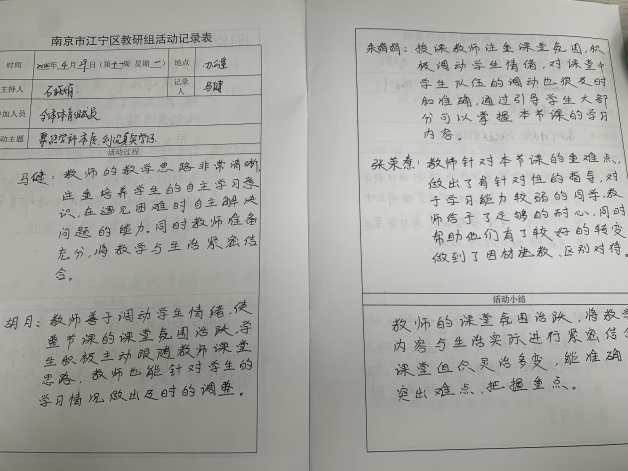 南京市江宁区教研组活动记录表
时间
年4月29日(第十一周 星期一)
地点
办公室
主持人
记录人
马健
参加人员
全体体育组成员
活动主题
活动过程
马健:教师的教学思路非常清晰,
注重培养学生的自主学习意
识,在遇见困难时自主解决
问题的能力。同时教师准备
充分,将教学与生活紧密结
合。
胡月:教师善于调动学生情绪,使
整节课的课堂氛围活跃,学
生积极主动跟随教师课堂
思路,教师也能针对学生的
学习情况做出及时的调整。
授课教师注重课堂氛围,积
极调动学生情绪,对课堂中
学生队伍的调动也很及时
和准确,通过引导学生大部
分可以掌握本节课的学习
内容。
教师针对本节课的重难点,
做出了有针对性的指导,对
于学习能力较弱的同学,教
师给予了足够的耐心,同时
帮助他们有了较好的转变
做到了因材施教、区别对待。
活动小结
教师的课堂氛围活跃,将教学
内容与生活实际进行紧密结合
课堂组织灵活多变,能准确
突出难点、把握重点。